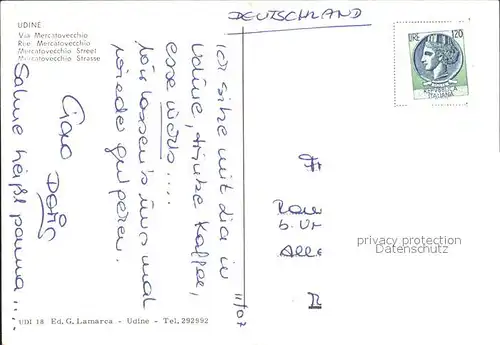 DEUTSCHLAND
UDINE
Via Mercatovecchio
Rue Mercatovecchio
Mercatovecchio Street
Mercatovecchio Strasse
LIRE 120
REPUBBLICA
ITALIANA
Ich sitze mit dia in
Udine, trinke Kaffee,
esse
wir lassen's uns mal
wieder gut gehen.
Ciao Doris
Sahne heißt panna ....
11/07
privacy protection
Datenschutz
UDI 18 Ed. G. Lamarca - Udine - Tel. 292992